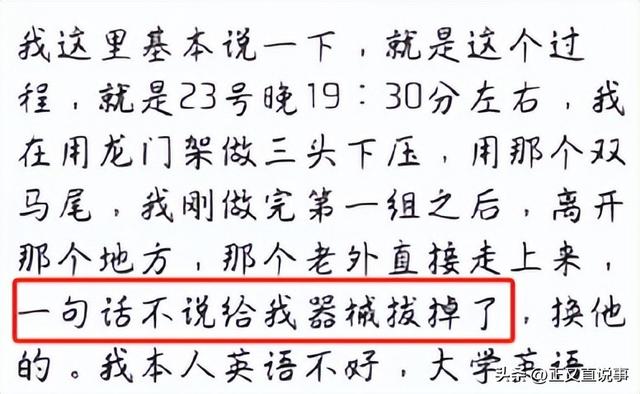 我这里基本说一下，就是这个过
程，就是23号晚19：30分左右，我
在用龙门架做三头下压，用那个双
马尾，我刚做完第一组之后，离开
那个地方，那个老外直接走上来，
一句话不说给我器械拔掉了，换他
的。我本人英语不好，大学英语
头条 @正义直说事